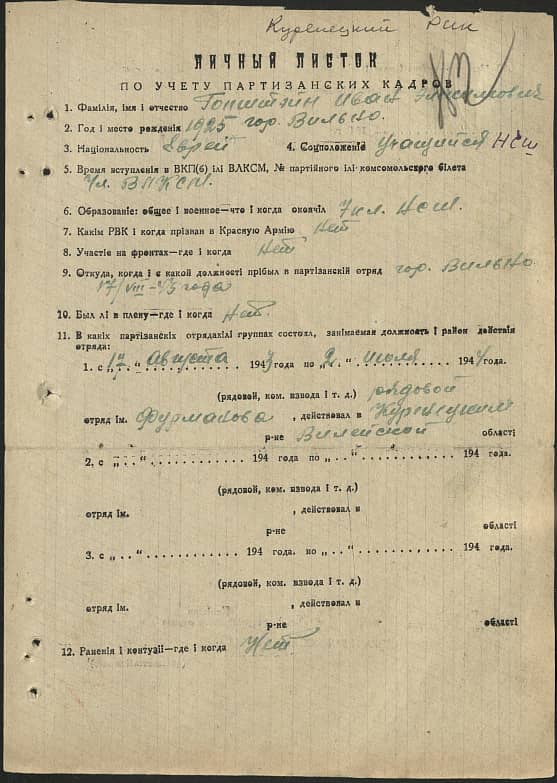 Куренецкий РИК
ЛИЧНЫЙ ЛИСТОК
ПО УЧЕТУ ПАРТИЗАНСКИХ КАДРОВ
1. Фамілія, імя і отчество Гопштэйн Иван
2. Год і место рождения 1925 гор. Вильно.
3. Національность Еврей 4. Соцположеніе Учащийся НСШ
5. Время вступленія в ВКП(б) ілі ВЛКСМ, № партійного ілі комсомольского білета
Чл. ВЛКСМ.
6. Образованіе: общее і военное—что і когда окончіл 7 кл. НСШ.
7. Какім РВК і когда прізван в Красную Армію Нет
8. Участіе на фронтах—где і когда Нет
9. Откуда, когда і с какой должності прібыл в партізанскій отряд гор. Вильно
17/VIII-43 года
10. Был лі в плену—где і когда Нет.
11. В какіх партізанскіх отрядах ілі группах состоял, занімаемая должность і район действія
отряда:
1. с „17“ Августа 1943 года по „2“ Июля 1944 года.
(рядовой, ком. взвода і т. д.) рядовой
отряд ім. Фурманова , действовал в Куренецким
р-не Вилейской області
2. с „ . . “ . . . . . . . . . . . . 194 года по „ . . “ . . . . . . . . . . . . 194 года.
(рядовой, ком. взвода і т. д.)
отряд ім. , действовал в
р-не області
3. с „ . . “ . . . . . . . . . . . . 194 года. по „ . . “ . . . . . . . . . . . . 194 года.
(рядовой, ком. взвода і т. д.)
отряд ім. , действовал в
р-не області
12. Раненія і контузіі—где і когда Нет